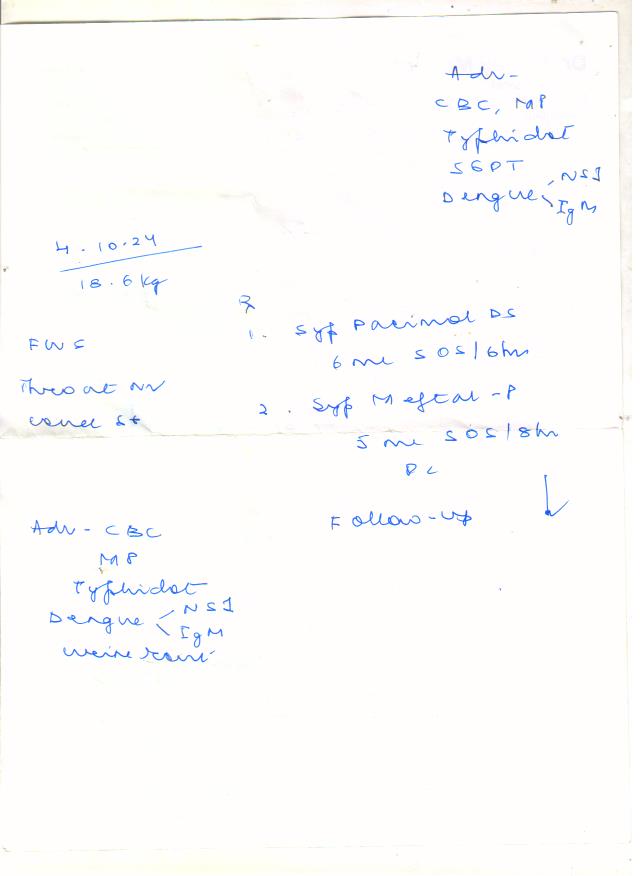 Adv -
CBC, MP
Typhidot
SGPT
Dengue NS1
IgM
4.10.24
18.6kg
FWS
Throat NN
canal st
Rx
1. Syp Pacimol DS
6 ml SOS/6hr
2. Syp Meftal-P
5 ml SOS/8hr
PC
Follow-up
Adv - CBC
MP
Typhidot
Dengue NS1
IgM
urine